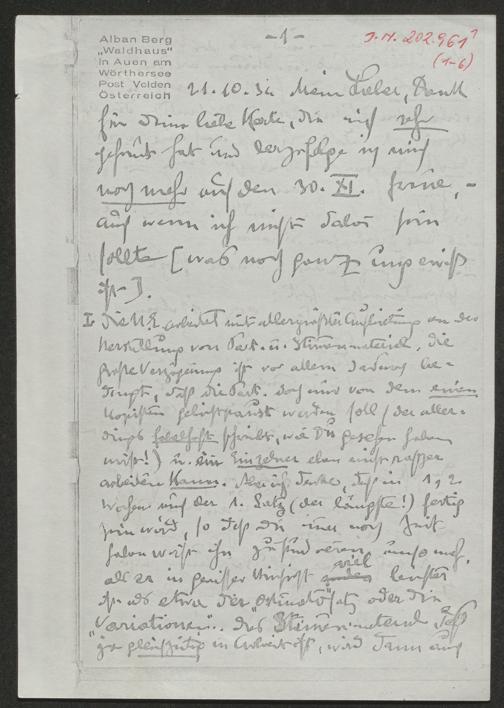 Alban Berg
„Waldhaus"
in Auen am
Wörthersee
Post Velden
Österreich
- 1 -
J.N. 202.961
(1-6)
21.10.34 Mein Lieber, Dank
für Deine liebe Karte, die mich sehr
gefreut hat und derzufolge ich mich
noch mehr auf den 30. XI. freue, -
auch wenn ich nicht dabei sein
sollte [was noch ganz ungewiß
ist].
I. Die U.E. arbeitet mit allergrößter Anspannung an der
Herstellung von Part. u. Stimmenmaterial, die
große Verzögerung ist vor allem dadurch be-
dingt, daß die Part. doch nur von dem einen
Kopisten geschrieben werden soll (der aller-
dings fabelhaft schreibt, wie Du gesehen haben
wirst!) u. ein Einzelner eben nicht rascher
arbeiten kann. Aber ich denke, daß in 1, 2
Wochen auch der 1. Satz (der längste!) fertig
sein wird, so daß Du immer noch Zeit
haben wirst ihn zu studieren, umso mehr,
als er in gewisser Hinsicht viel leichter
ist als etwa der „Ostinato"satz oder die
„Variationen". Das Stimmenmaterial, das
ja gleichzeitig in Arbeit ist, wird dann auch